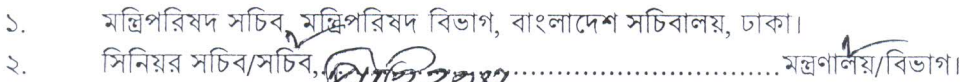 ১. মন্ত্রিপরিষদ সচিব, মন্ত্রিপরিষদ বিভাগ, বাংলাদেশ সচিবালয়, ঢাকা।
২. সিনিয়র সচিব/সচিব, ........................................ মন্ত্রণালয়/বিভাগ।